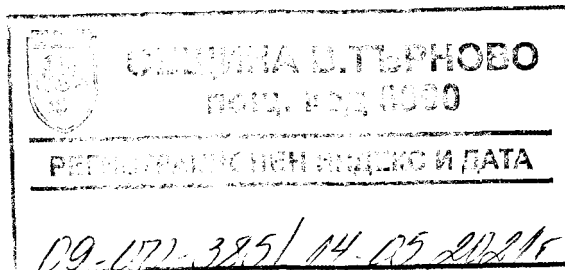 ОБЩИНА В.ТЪРНОВО
пощ. код 5000
РЕГИСТРАЦИОНЕН ИНДЕКС И ДАТА
14-05-2021г